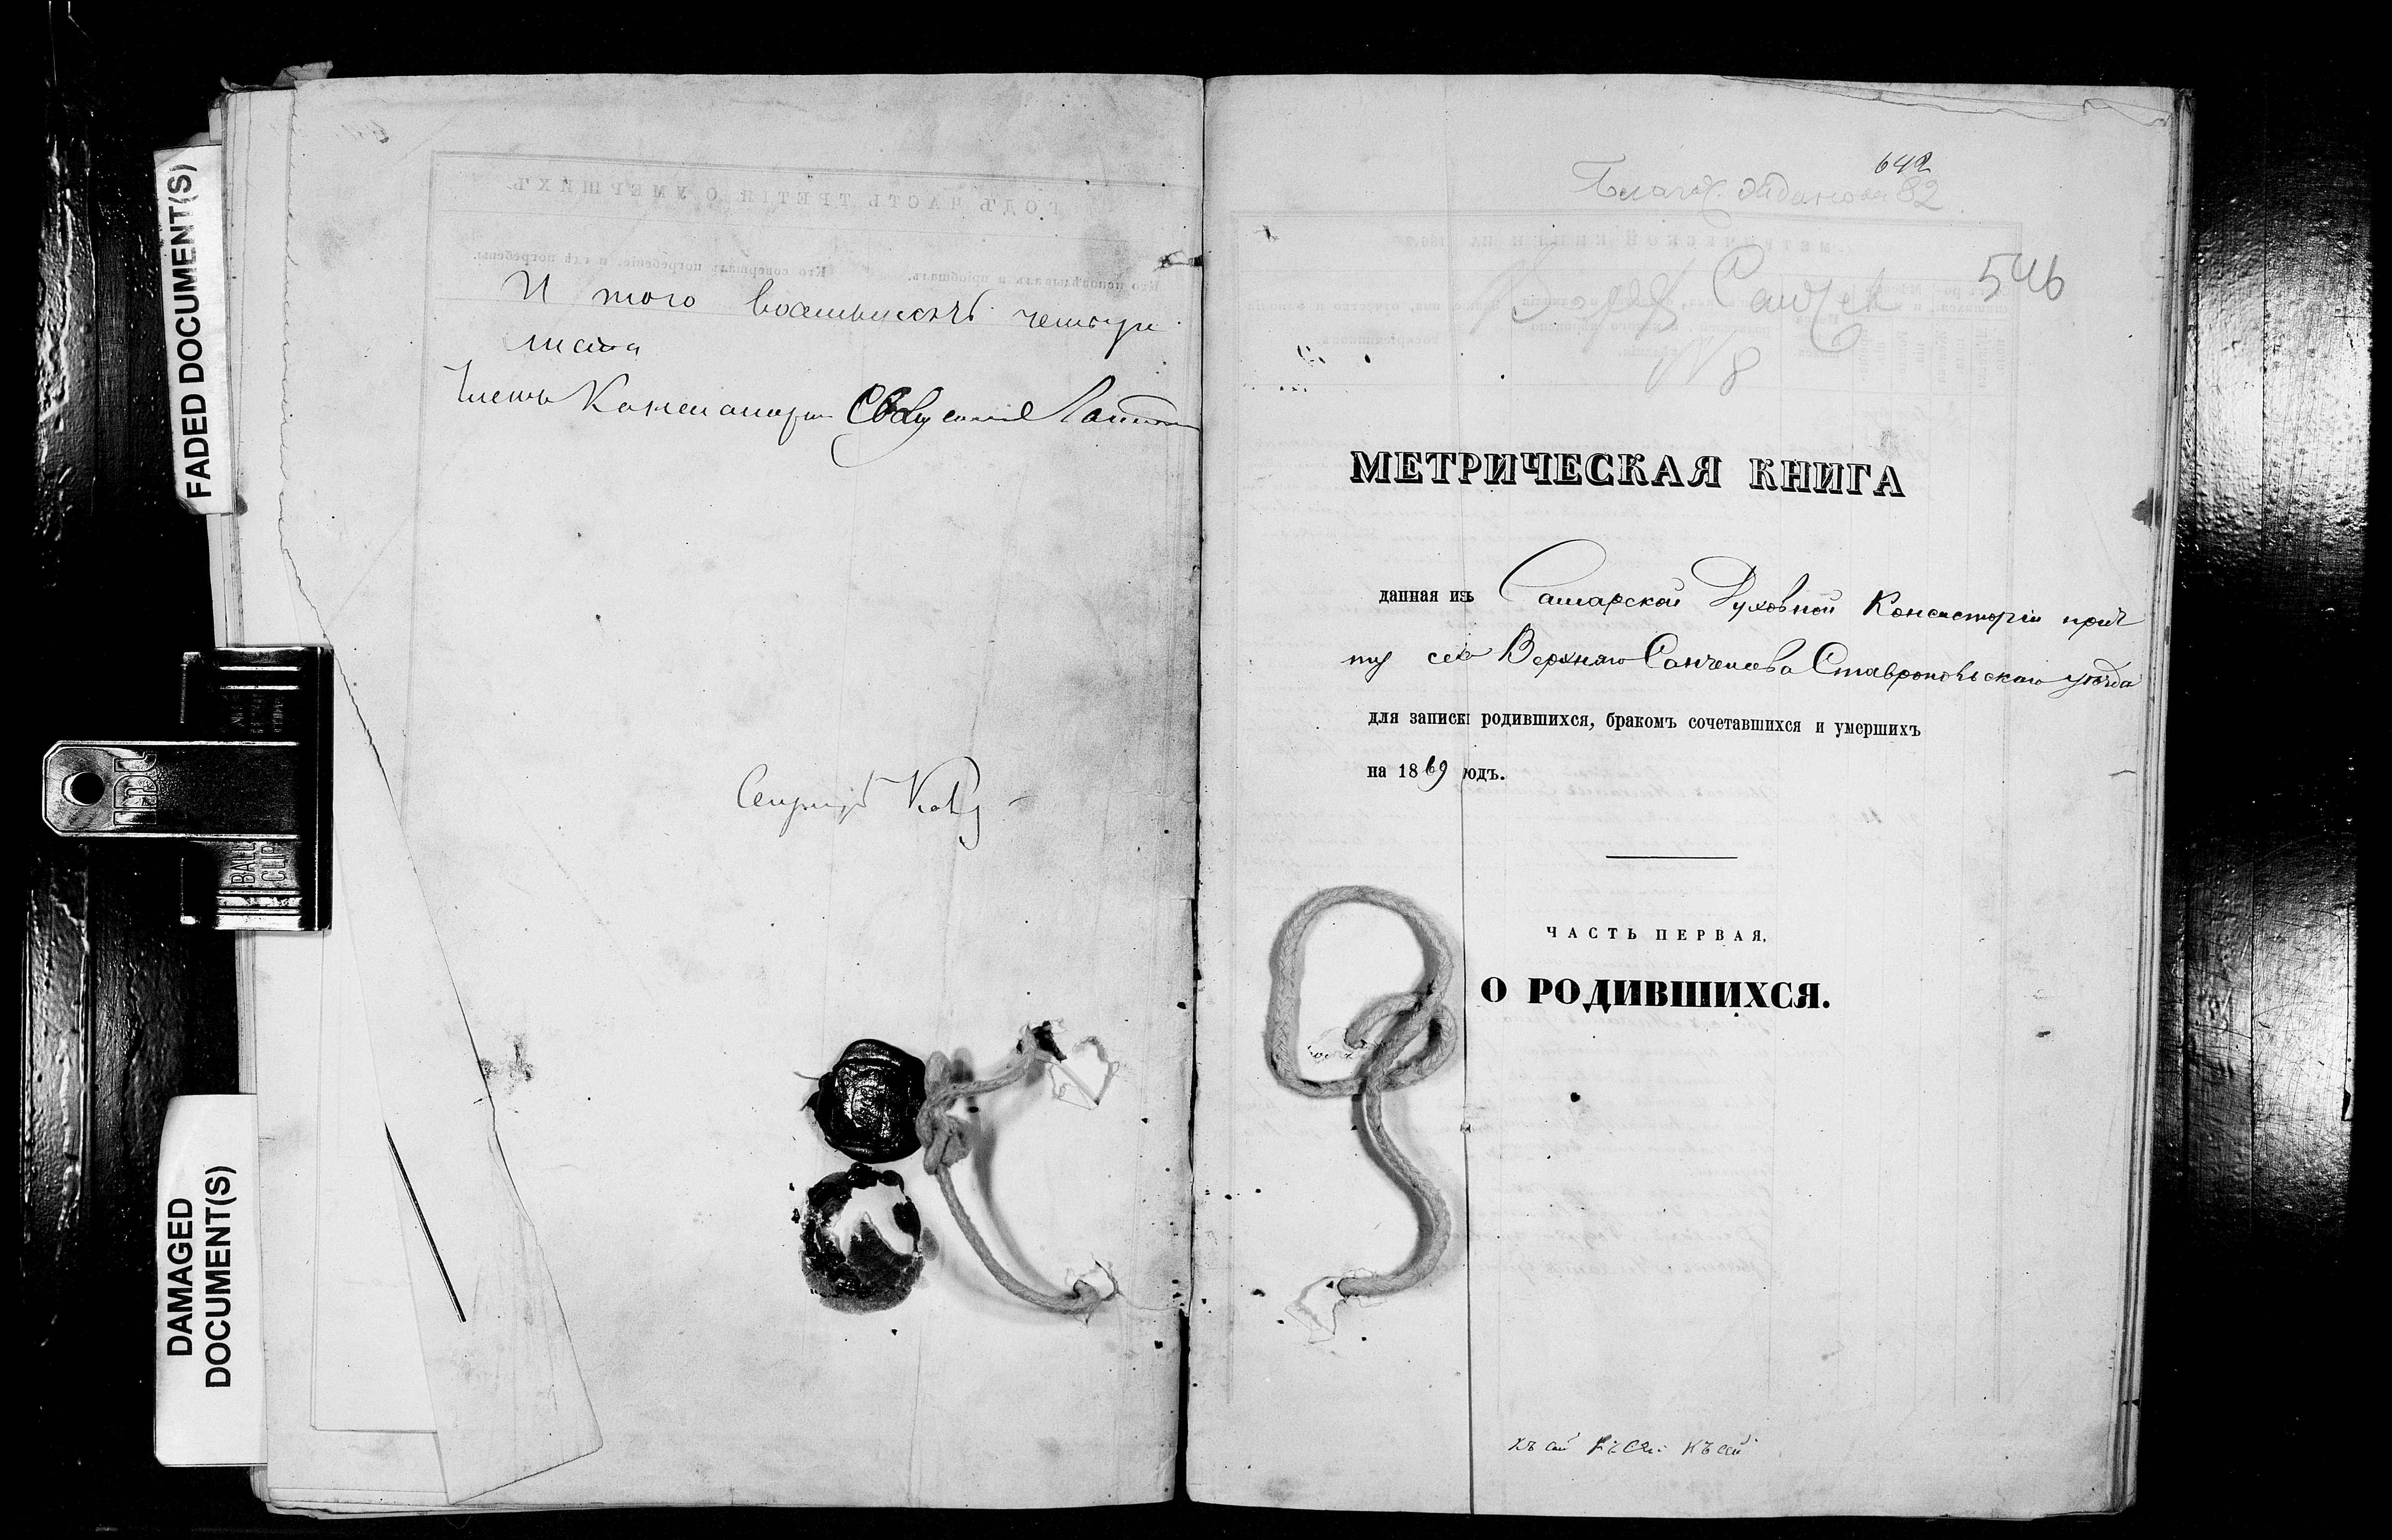 FADED DOCUMENT(S)
DAMAGED
DOCUMENT(S)
BALL
CLIP
И того восемьдесятъ четыре
листа
Членъ Консисторіи Священникъ
Секретарь
642
Благоч. 82
546
№ 8
МЕТРИЧЕСКАЯ КНИГА
данная изъ Самарской Духовной Консисторіи прич
ту села Верхняго Санчелеева Ставропольскаго уѣзда
для записки родившихся, бракомъ сочетавшихся и умершихъ
на 1869 годъ.
ЧАСТЬ ПЕРВАЯ.
О РОДИВШИХСЯ.